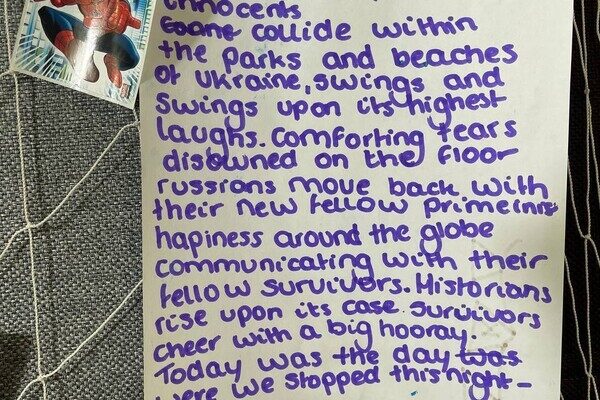 innocents
collide within
the parks and beaches
of ukraine, swings and
swings upon its highest
laughs. Comforting tears
disowned on the floor
russians move back with
their new fellow prime
hapiness around the globe
communicating with their
fellow survivors. Historians
rise upon its case. survivors
cheer with a big hooray.
Today was the day was
were we stopped this night-